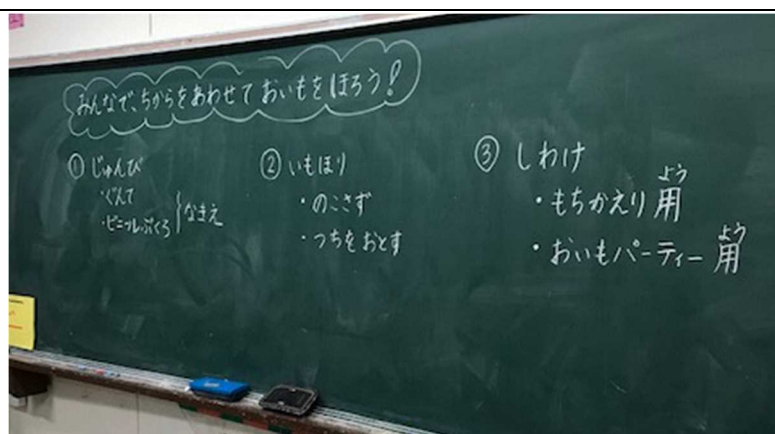 みんなで、ちからをあわせて おいもをほろう!
① じゅんび
・ぐんて
・ビニールぶくろ
} なまえ
② いもほり
・のこさず
・つちをおとす
③ しわけ
・もちかえり用
よう
・おいもパーティー用
よう